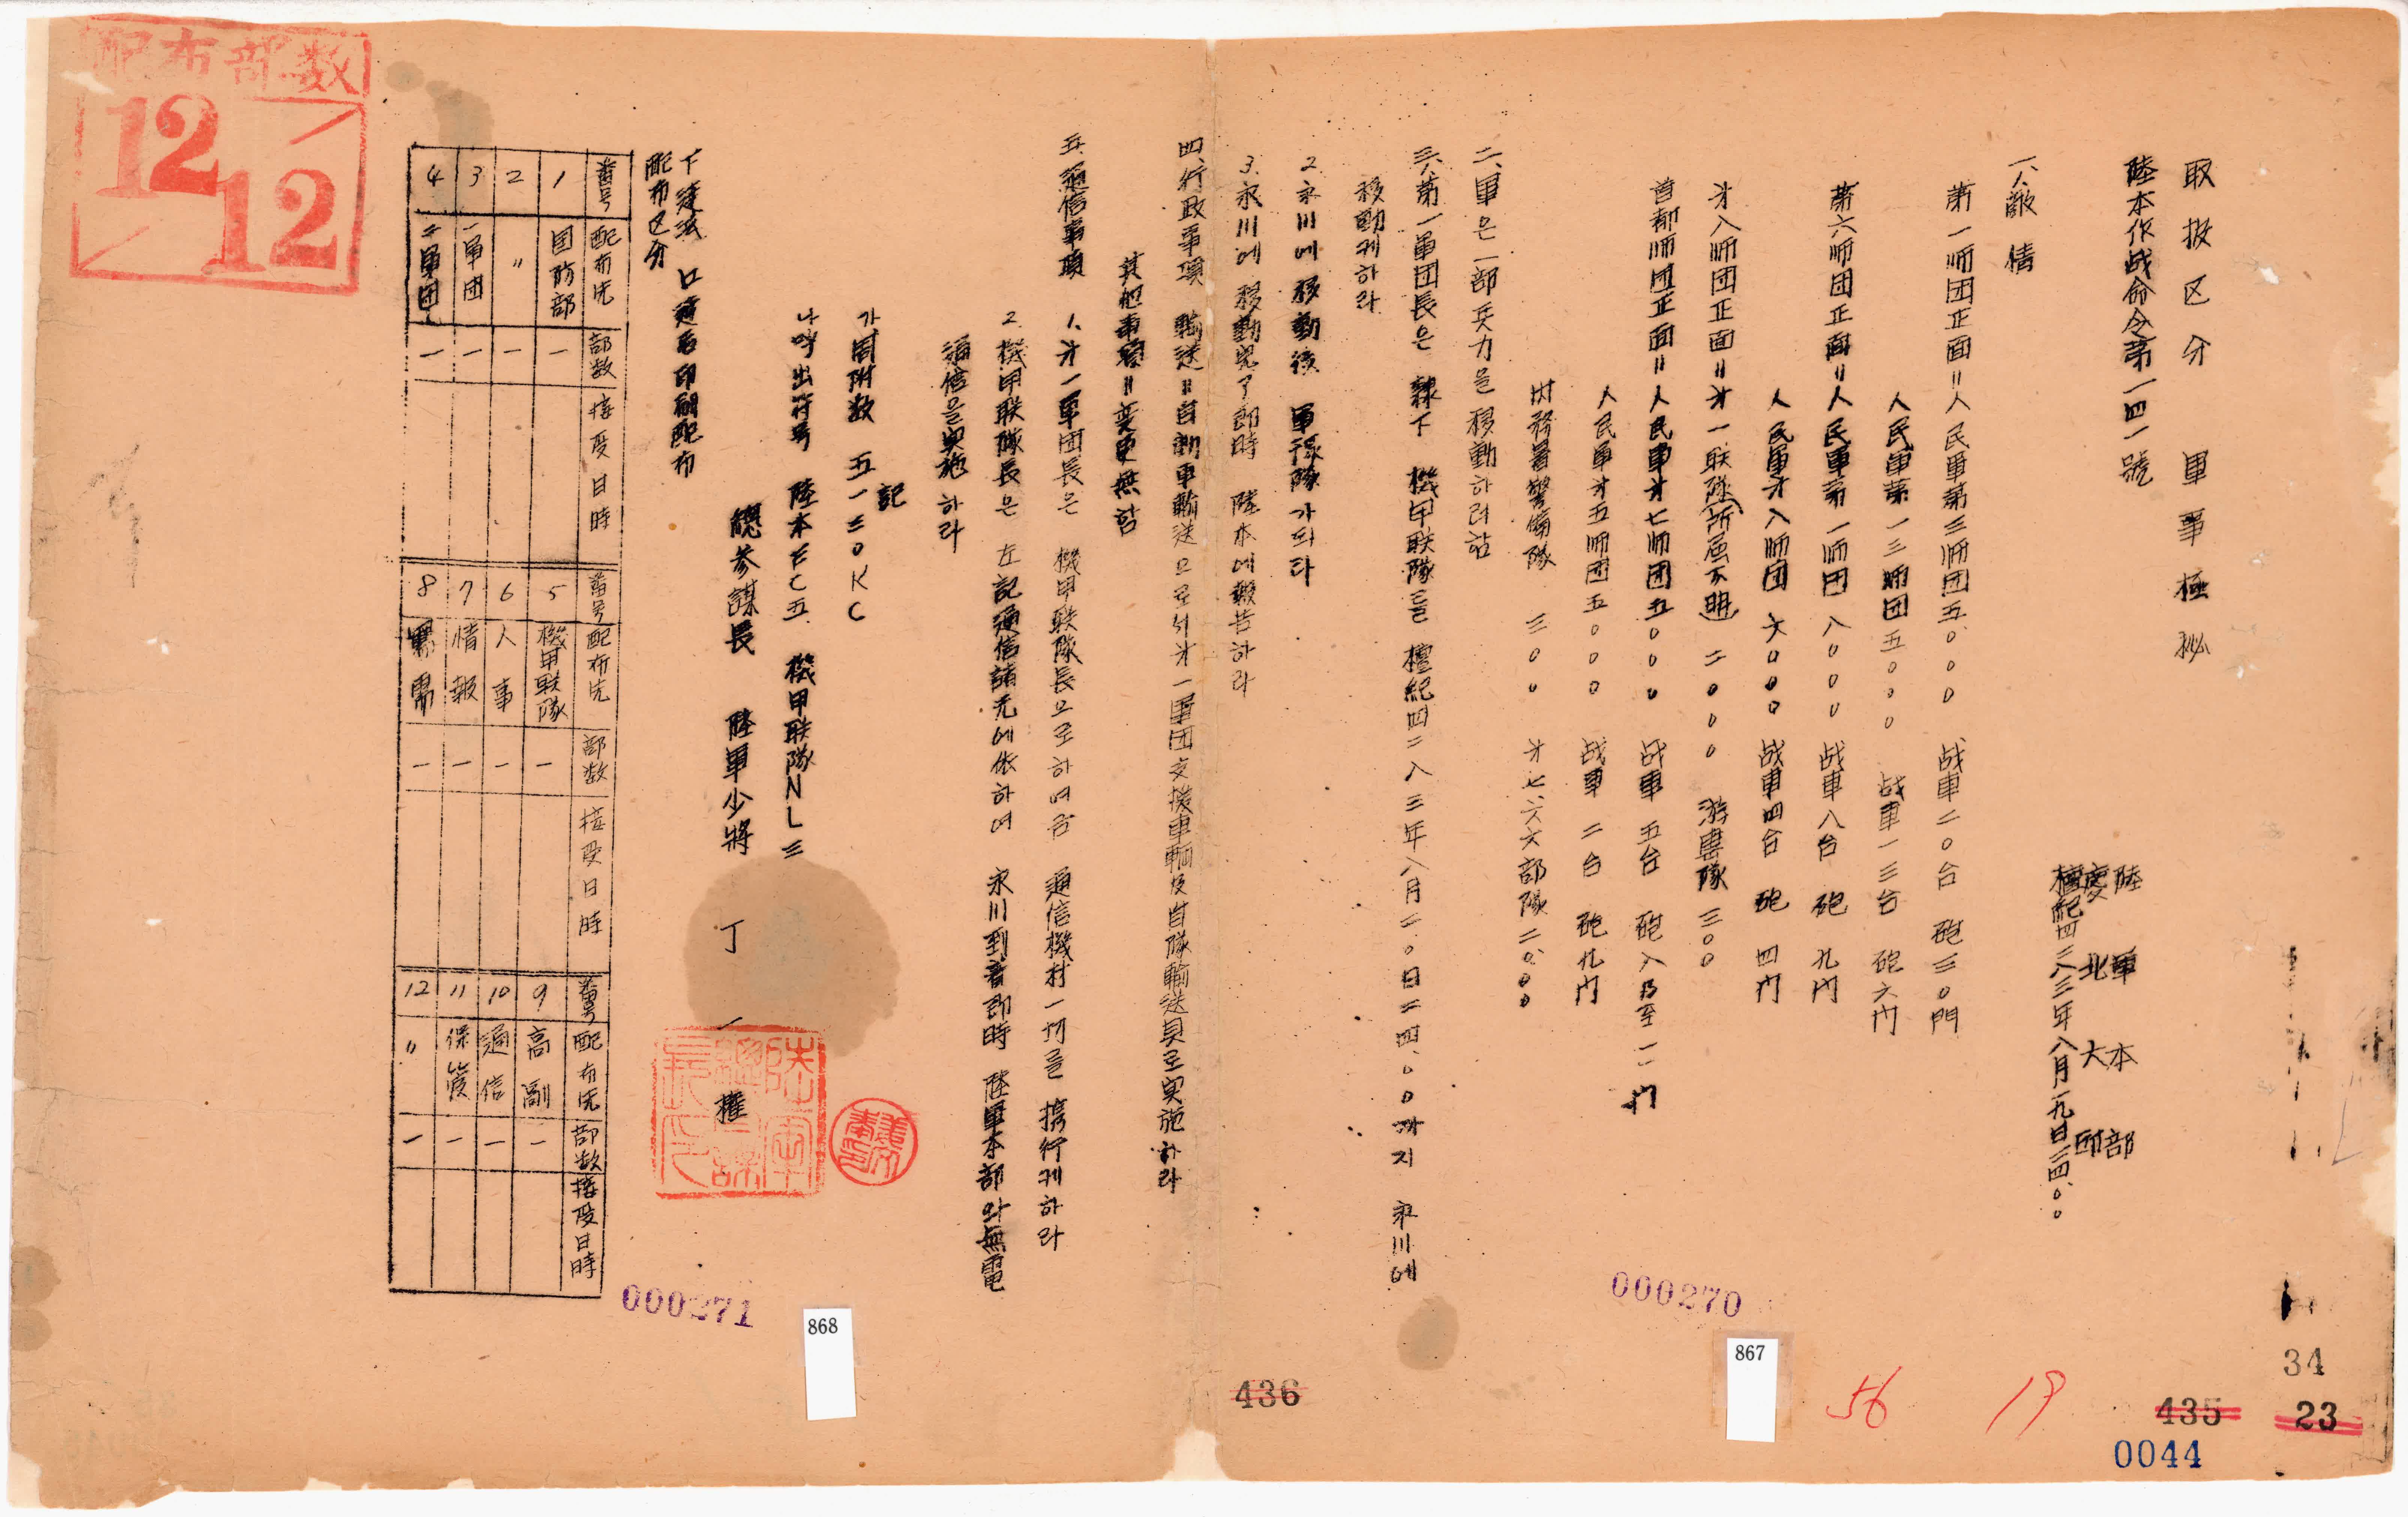 取扱区分 軍事極秘
陸本作战命令第一四一號
陸軍本部
慶北大邱
檀紀四二八三年八月一九日二四.〇〇
一、敵情
第一师团正面=人民軍第三师团五〇〇〇 战車二〇台 砲三〇門
人民軍第一三师团五〇〇〇 战車一三台 砲六门
第六师团正面=人民軍第一师团 八〇〇〇 战車八台 砲九门
人民軍才八师团 六〇〇〇 战車四台 砲四门
才八师团正面=才一联隊(所属不明) 二〇〇〇 游擊隊 三〇〇
首都师团正面=人民軍才七师团五〇〇〇 战車五台 砲八乃至一一门
人民軍才五师团五〇〇〇 战車二台 砲九门
財務署警備隊 三〇〇 才七六六部隊二〇〇〇
二、軍은一部兵力을移動하려함
三、第一軍团長은 隸下 機甲联隊를 檀紀四二八三年八月二〇日二四.〇〇까지 永川에
移動케하라
2.永川에移動後 軍豫隊가되라
3.永川에移動完了卽時 陸本에報告하라
四、行政事項 輸送=自動車輸送으로서才一軍团交換車輛及自隊輸送具로实施하라
其他事項=変更無함
五.通信事項 1.才一軍团長은 機甲联隊長으로하여금 通信機材一切를 携行케하라
2.機甲联隊長은 左記通信諸元에依하여 永川到着卽時 陸軍本部와無電
通信을実施하라
記
가.周附数 五一三〇KC
나.呼出符号 陸本FC五. 機甲联隊NL三
總参謀長 陸軍少將 丁一權
陸軍總参謀長印
下達法 口達后印刷配布
配布区分
番号 配布先 部数 接受日時 番号 配布先 部数 接受日時 番号 配布先 部数 接受日時
1 国防部 一 5 機甲联隊 一 9 高副 一
2 〃 一 6 人事 一 10 通信 一
3 一軍团 一 7 情報 一 11 保管 一
4 二軍团 一 8 軍需 一 12 〃 一
配布部数
12/12
000271
868
436
000270
867
56
19
435
0044
34
23